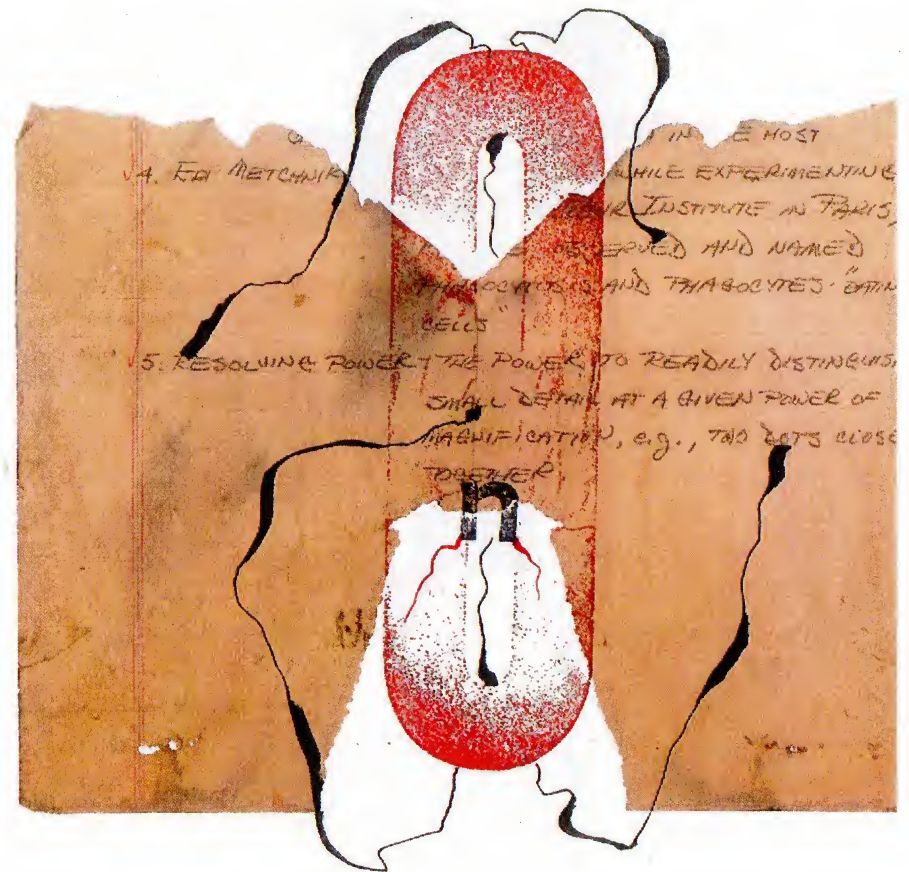 IN THE MOST
4. Eli METCHNIK WHILE EXPERIMENTING
INSTITUTE IN PARIS,
OBSERVED AND NAMED
PHAGOCYTOSIS AND PHAGOCYTES - "EATIN
CELLS"
5. RESOLVING POWER - THE POWER TO READILY DISTINGUIS
SMALL DETAIL AT A GIVEN POWER OF
MAGNIFICATION, e.g., TWO DOTS CLOSE
TOGETHER
n